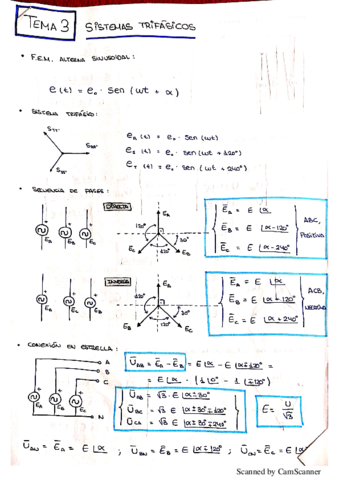 TEMA 3 SISTEMAS TRIFÁSICOS
• F.E.M. ALTERNA SINUSOIDAL:
e(t) = e₀ · sen (wt + α)
• SISTEMA TRIFÁSICO:
e_R (t) = e₀ · sen (wt)
e_S (t) = e₀ · sen (wt + 120°)
e_T (t) = e₀ · sen (wt + 240°)
• SECUENCIA DE FASES:
DIRECTA
E_A E_B E_C
120° 30° 120°
E_A E_B E_C
Ē_A = E ∠α
Ē_B = E ∠α-120°
Ē_C = E ∠α-240°
ABC, POSITIVA
INVERSA
E_A E_B E_C
120° 30° 120°
Ē_A = E ∠α
Ē_B = E ∠α+120°
Ē_C = E ∠α+240°
ACB, NEGATIVA
• CONEXIÓN EN ESTRELLA:
A
B
C
N
E_A E_B E_C
Ū_AB = Ē_A - Ē_B = E∠α - E∠α∓120° =
= E∠α · (1∠0° - 1∠∓120°)
Ū_BC = √3 E ∠α±30°∓120°
Ū_CA = √3 E ∠α±30°∓240°
E = U/√3
Ū_AN = Ē_A = E∠α ; Ū_BN = Ē_B = E∠α∓120° ; Ū_CN = Ē_C = E∠α
Scanned by CamScanner